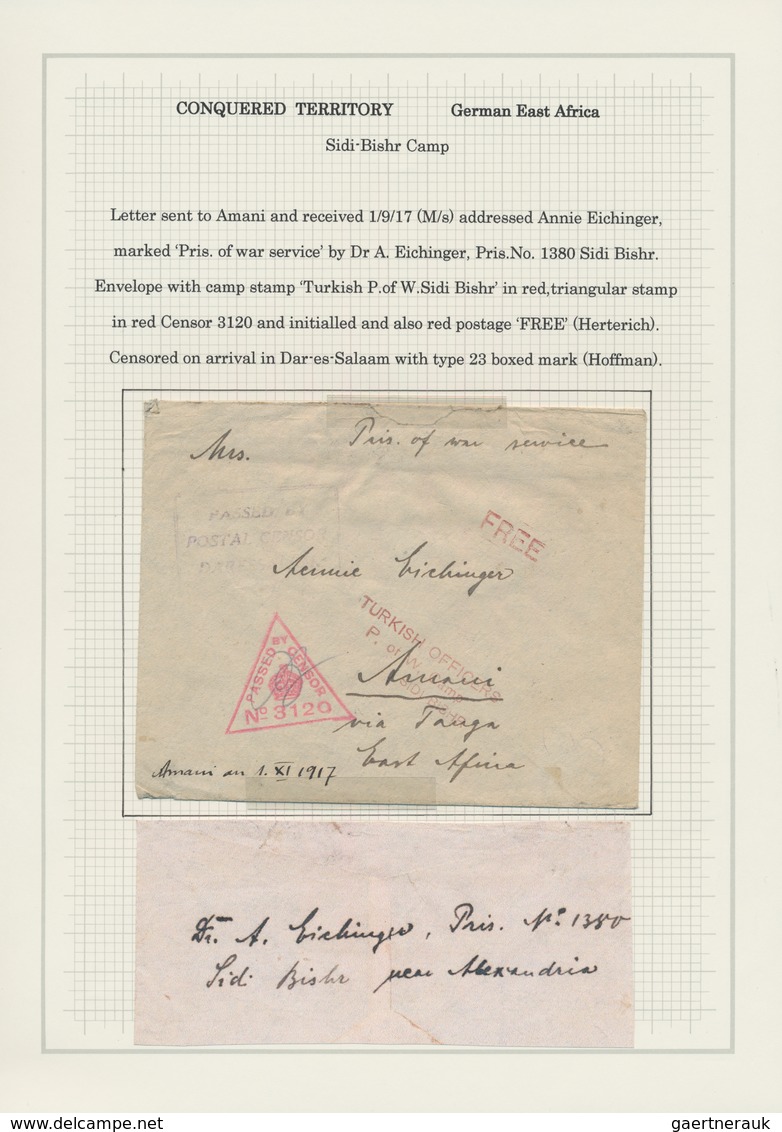 CONQUERED TERRITORY German East Africa
Sidi-Bishr Camp
Letter sent to Amani and received 1/9/17 (M/s) addressed Annie Eichinger,
marked 'Pris. of war service' by Dr A. Eichinger, Pris.No. 1380 Sidi Bishr.
Envelope with camp stamp 'Turkish P.of W.Sidi Bishr' in red,triangular stamp
in red Censor 3120 and initialled and also red postage 'FREE' (Herterich).
Censored on arrival in Dar-es-Salaam with type 23 boxed mark (Hoffman).
Pris. of war service
Mrs.
PASSED BY
POSTAL CENSOR
FREE
Aennie Eichinger
TURKISH OFFICERS
P. of W. Camp
SIDI BISHR
PASSED BY CENSOR
No 3120
Amani
via Tanga
East Africa
Amani an 1. XI 1917
Dr. A. Eichinger, Pris. No. 1380
Sidi Bishr near Alexandria
gaertnerauk